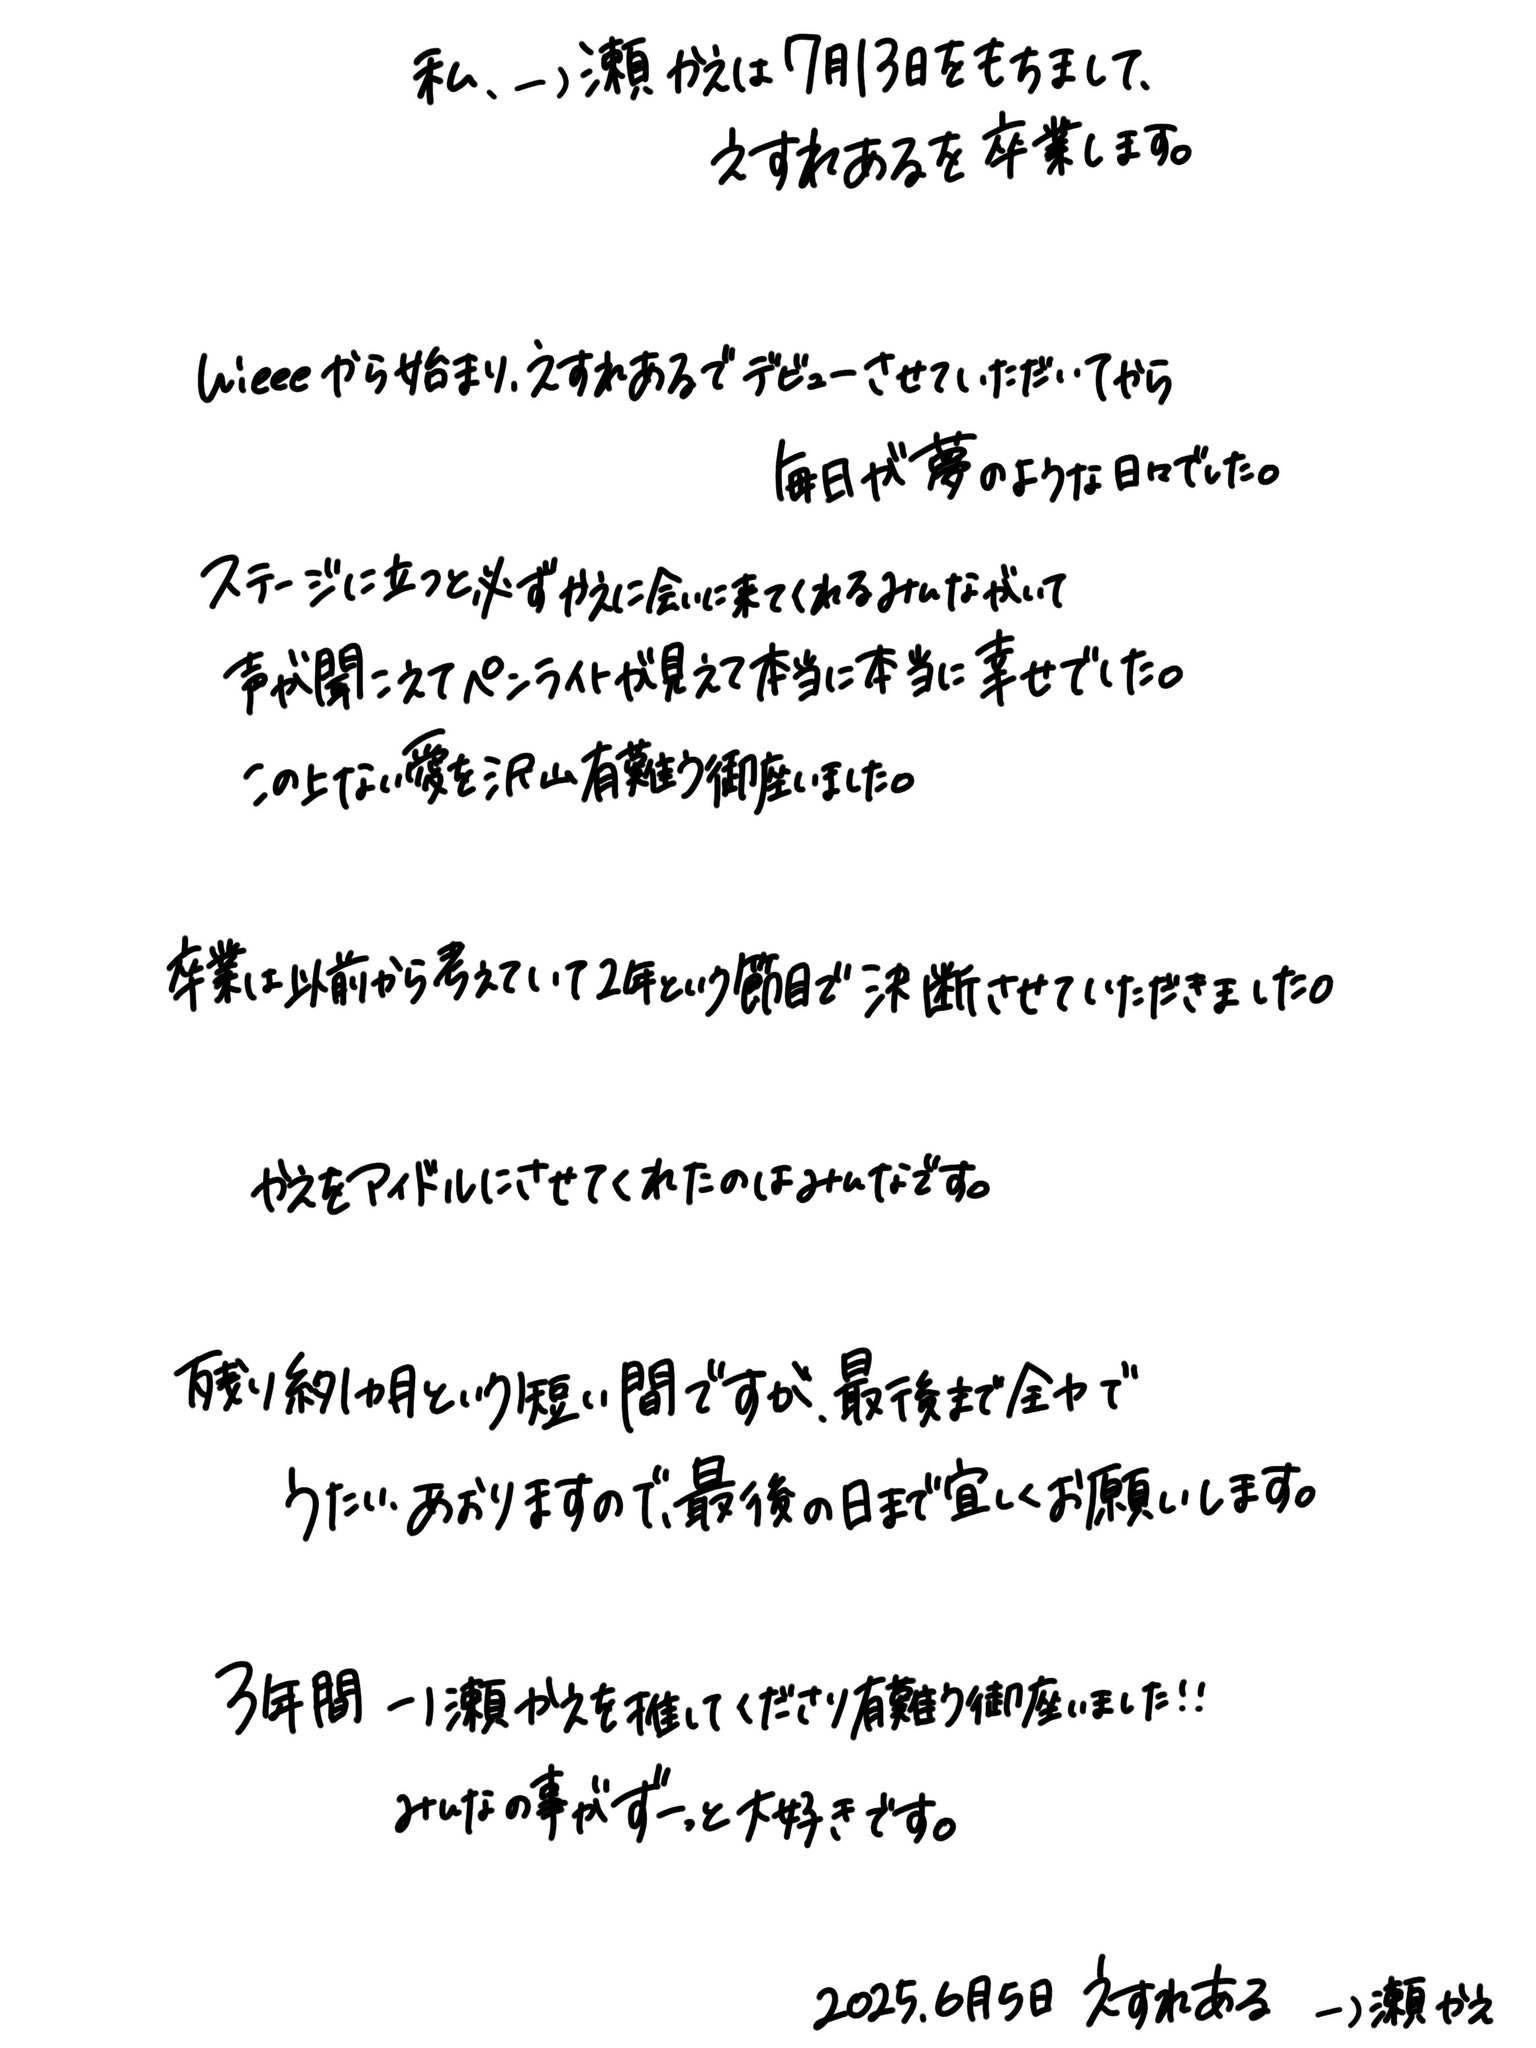 私、一ノ瀬かえは7月13日をもちまして、
えすれあるを卒業します。
wieeeから始まり、えすれあるでデビューさせていただいてから
毎日が夢のような日々でした。
ステージに立つと必ずかえに会いに来てくれるみんながいて
声が聞こえてペンライトが見えて本当に本当に幸せでした。
この上ない愛を沢山有難う御座いました。
卒業は以前から考えていて2年という節目で決断させていただきました。
かえをアイドルにさせてくれたのはみんなです。
残り約1ヵ月という短い間ですが、最後まで全力で
うたい、おどりますので、最後の日まで宜しくお願いします。
3年間 一ノ瀬かえを推してくださり有難う御座いました!!
みんなの事がずーっと大好きです。
2025.6月5日 えすれある 一ノ瀬かえ